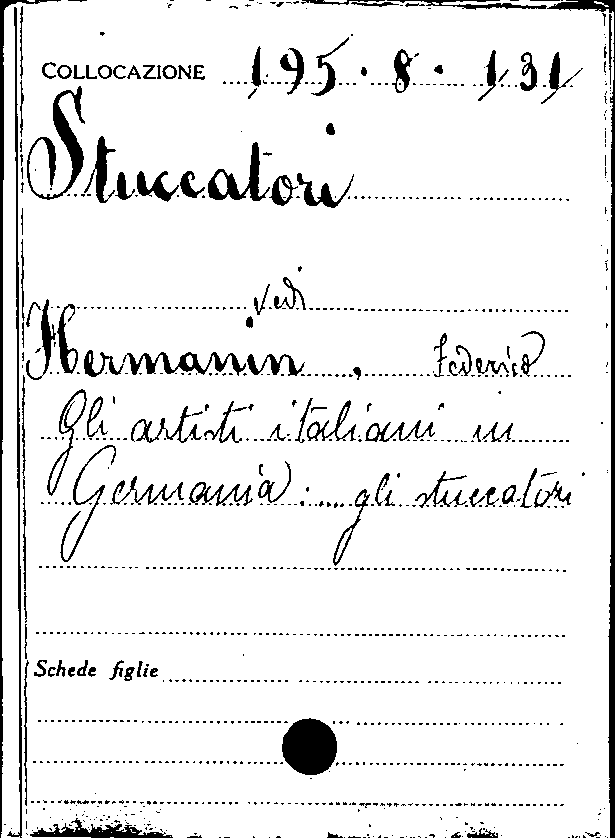 COLLOCAZIONE 195.8.131
Stuccatori
vedi
Hermanin, Federico
Gli artisti italiani in
Germania:....gli stuccatori
Schede figlie